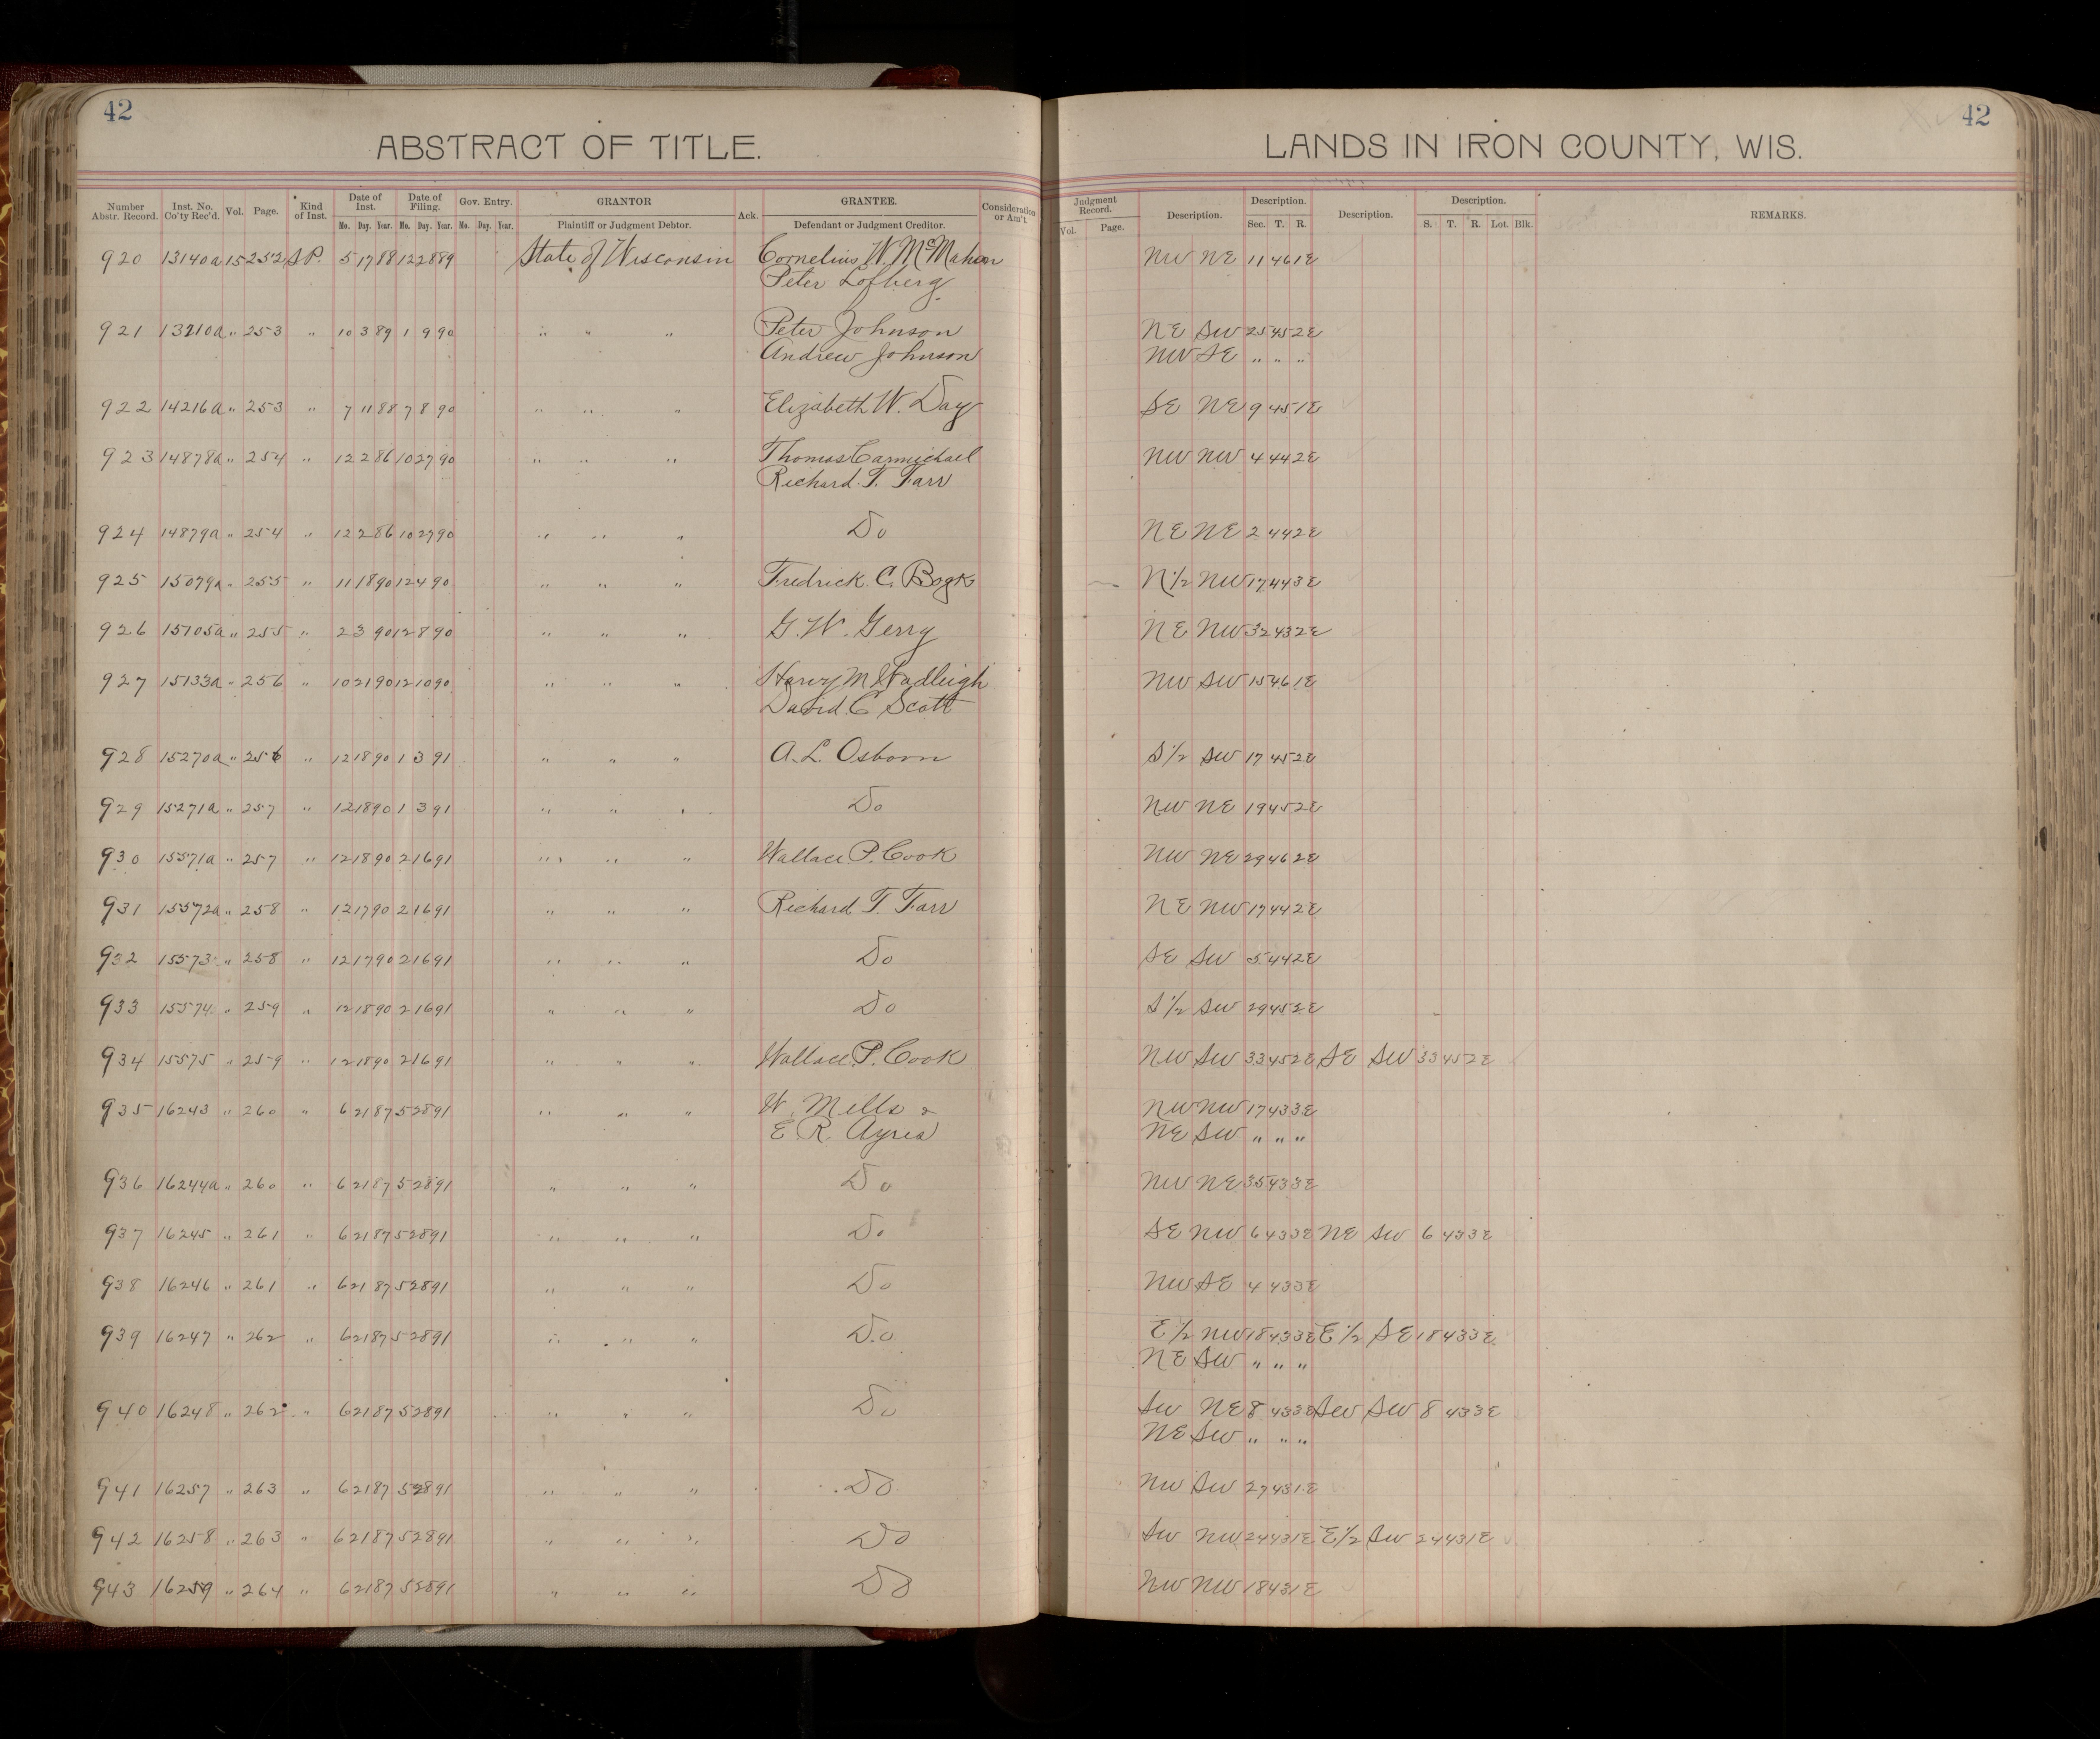 42
ABSTRACT OF TITLE.
Number Abstr. Record. Inst. No. Co'ty Rec'd. Vol. Page. Kind of Inst. Date of Inst. Date of Filing. Gov. Entry. GRANTOR Ack. GRANTEE. Consideration or Am't.
Mo. Day. Year. Mo. Day. Year. Mo. Day. Year. Plaintiff or Judgment Debtor. Defendant or Judgment Creditor.
920 13140a 15 252 S.P. 5 17 88 12 28 89 State of Wisconsin Cornelius W. McMahon
Peter Lofberg
921 13210a " 253 " 10 3 89 1 9 90 " " " Peter Johnson
Andrew Johnson
922 14216a " 253 " 7 11 88 7 8 90 " " " Elizabeth W. Day
923 14878a " 254 " 12 2 86 10 27 90 " " " Thomas Carmichael
Richard T. Farr
924 14879a " 254 " 12 2 86 10 27 90 " " " Do
925 15079a " 255 " 11 18 90 12 4 90 " " " Fredrick C. Bogk
926 15105a " 255 " 2 3 90 12 8 90 " " " G. W. Gerry
927 15133a " 256 " 10 21 90 12 10 90 " " " Harvy M Wadleigh
David C Scott
928 15270a " 256 " 12 18 90 1 3 91 " " " A. L. Osborn
929 15271a " 257 " 12 18 90 1 3 91 " " " Do
930 15571a " 257 " 12 18 90 2 16 91 " " " Wallace P. Cook
931 15572a " 258 " 12 17 90 2 16 91 " " " Richard T. Farr
932 15573 " 258 " 12 17 90 2 16 91 " " " Do
933 15574 " 259 " 12 18 90 2 16 91 " " " Do
934 15575 " 259 " 12 18 90 2 16 91 " " " Wallace P. Cook
935 16243 " 260 " 6 21 87 5 28 91 " " " W. Mells &
E R. Ayres
936 16244a " 260 " 6 21 87 5 28 91 " " " Do
937 16245 " 261 " 6 21 87 5 28 91 " " " Do
938 16246 " 261 " 6 21 87 5 28 91 " " " Do
939 16247 " 262 " 6 21 87 5 28 91 " " " Do
940 16248 " 262 " 6 21 87 5 28 91 " " " Do
941 16257 " 263 " 6 21 87 5 28 91 " " " Do
942 16258 " 263 " 6 21 87 5 28 91 " " " Do
943 16259 " 264 " 6 21 87 5 28 91 " " " Do
42
LANDS IN IRON COUNTY, WIS.
Judgment Record. Description. Description. Description. Description. REMARKS.
Vol. Page. Sec. T. R. S. T. R. Lot. Blk.
NW NE 11 46 1E
NE SW 25 45 2E
NW SE " " "
SE NE 9 45 1E
NW NW 4 44 2E
NE NE 2 44 2E
N 1/2 NW 17 44 3E
NE NW 32 43 2E
NW SW 15 46 1E
S 1/2 SW 17 45 2E
NW NE 19 45 2E
NW NE 29 46 2E
NE NW 17 44 2E
SE SW 5 44 2E
S 1/2 SW 29 45 2E
NW SW 33 45 2E SE SW 33 45 2E
NW NW 17 43 3E
NE SW " " "
NW NE 35 43 3E
SE NW 6 43 3E NE SW 6 43 3E
NW SE 4 43 3E
E 1/2 NW 18 43 3E E 1/2 SE 18 43 3E
NE SW " " "
SW NE 8 43 3E SW SW 8 43 3E
NE SW " " "
NW SW 27 43 1E
SW NW 24 43 1E E 1/2 SW 24 43 1E
NW NW 18 43 1E